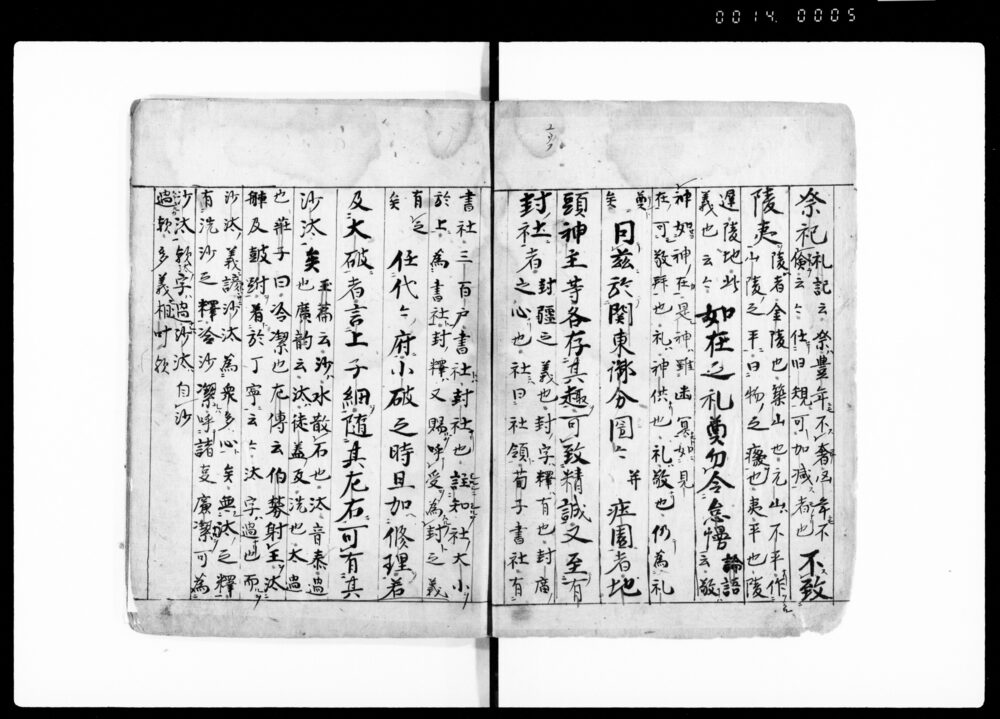 0014.0005
祭祀礼記云祭豊年不奢凶年不
倹云々仕旧規可加減者也 不致
陵夷陵者金陵也築山也元山不平作
山陵之平曰物之癈也夷平也陵
遅陵地此 如在之礼奠勿令怠慢論語
義也云々 云敬
神如神在是神雖幽冥如見
在可敬畀也礼神供也礼敬也仍為礼
奠
矣 因茲於関東御分国々并庄園者地
頭神主等各存其趣可致精誠又至有
封社者封疆之義也封字釈有也封広
之心也社曰社領荀子書社有
書社三百戸書社封社也註知社大小
於上為書社封釈又賜呼受為封之義
有之
矣 任代々府小破之時且加修理若
及大破者言上子細随其左右可有其
沙汰矣玉篇云沙水散石也汰音泰過
也広韵云汰徒蓋反洗也太過
也荘子曰冷潔也左傳云伯棼射王汰
輈及鼓跗着於丁寧云々汰字過也而
沙汰義諺沙汰為衆多心矣無汰之釈
有洗沙之釈冷沙潔呼諸事廣潔可為
沙汰歟字過沙汰自沙
過歟多義相叶歟